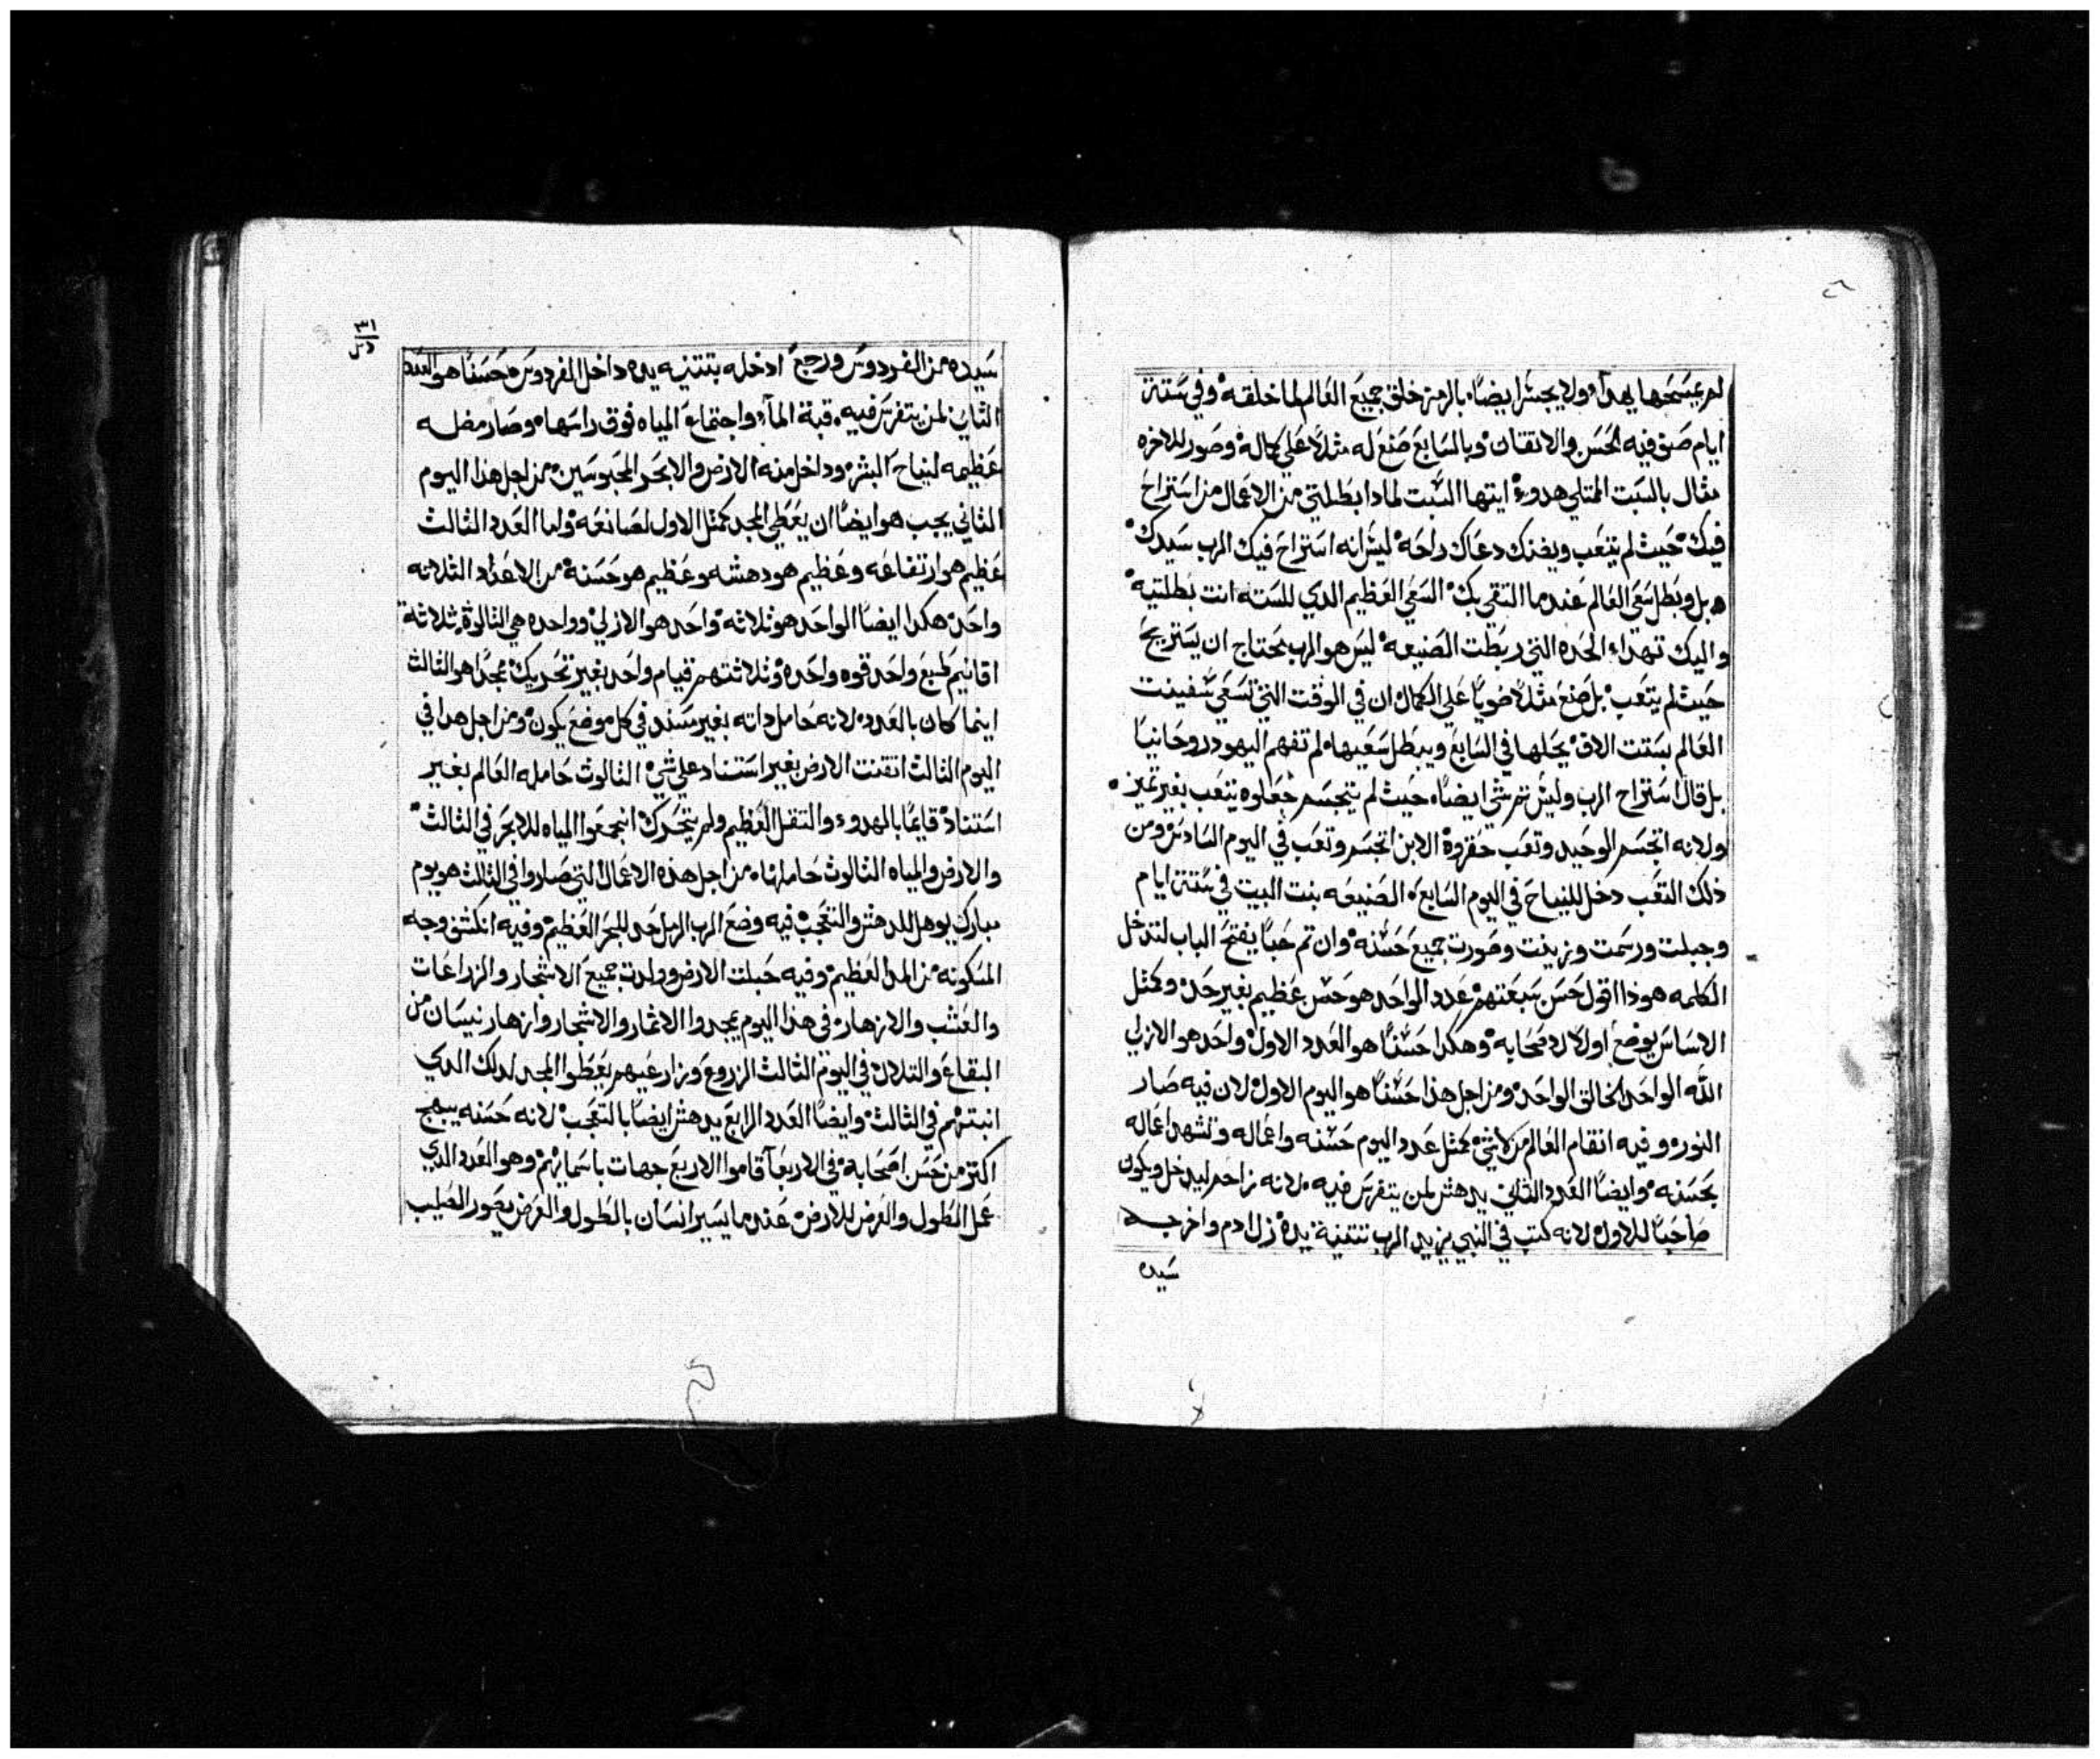 لم يمسحها بهدا ولا يجسر ايضا بالرمز خلق جميع العالم لما خلقه وفي ستة
ايام صنع فيه الحسن والاتقان وبالسابع صنع له مثلا علي كماله وصور للاخره
مثال بالسبت الممتلي هدوء ايتها السبت لمادا بطلتي من الاعمال من استراح
فيك حيث لم يتعب ويضنك دعاك راحه ليس انه استراح فيك الرب سيدك
بل وبطل سعي العالم عندما التقي بك السعي العظيم الدي للسته انت بطلتيه
واليك تهدا الحده التي ربطت الصنيعه ليس هو الرب يحتاج ان يستريح
حيث لم يتعب بل صنع مثلا ضويا علي الكمال ان في الوقت التي تسعي سفينت
العالم بستت الاف يحلها في السابع ويبطل سعيها لم تفهم اليهود روحانيا
بل قال استراح الرب وليس ثم شي ايضا حيث لم يتجسم جعلوه يتعب بغير تميز
ولانه اتجسم الوحيد وتعب حقروه الابن اتجسم وتعب في اليوم السادس ومن
ذلك التعب دخل للنياح في اليوم السابع الصنيعه بنت البيت في ستة ايام
وجبلت ورسمت وزينت وصورت جميع حسنه وان تم حبا يفتح الباب لتدخل
الكلمه هوذا اقول حسن سبعتهم عدد الواحد هو حسن عظيم بغير حد وكمثل
الاساس يوضع اولا لاصحابه وهكدا حسنا هو العدد الاول واحد هو الازلي
الله الواحد الخالق الواحد ومن اجل هذا حسنا هو اليوم الاول لان فيه صار
النور وفيه اتقام العالم من لاشي كمثل عدد اليوم حسنه واعماله وتشهد اعماله
بحسنه وايضا العدد الثاني يدهش لمن يتفرس فيه لانه زاحم ليدخل ويكون
صاحبا للاول لانه كتب في النبي يزيد الرب تتنية يده زل ادم واخرجه
سيده
٣١
سيده من الفردوس ورجع ادخله بتتنيه يده داخل الفردوس حسنا هو العدد
الثاني لمن يتفرس فيه قبة الماء واجتماع المياه فوق راسها وصار مضله
عظيمه لنياح البشر وداخل منه الارض والابحر المحبوسين من اجل هذا اليوم
الثاني يجب هو ايضا ان يعطي المجد كمثل الاول لصانعه واما العدد الثالث
عظيم هو ارتفاعه وعظيم هو دهشه وعظيم هو حسنه من الاعداد الثلاثه
واحد هكدا ايضا الواحد هو ثلاثه واحد هو الازلي وواحده هي الثالوث ثلاثة
اقانيم طبع واحد قوه واحده وثلاثتهم قيام واحد بغير تحريك مجدا هو الثالث
اينما كان بالعدد لانه حامل داته بغير سند في كل موضع يكون ومن اجل هدا في
اليوم الثالث اتقنت الارض بغير استناد علي شي الثالوث حامله العالم بغير
استناد قايما بالهدوء والتقل العظيم ولم يتحرك اتجمعوا المياه للابحر في الثالث
والارض والمياه الثالوث حاملها من اجل هذه الاعمال التي صاروا في الثالث هو يوم
مبارك يوهل للدهش والتعجب فيه وضع الرب الرمل حد للبحر العظيم وفيه انكشف وجه
المسكونه من الما العظيم وفيه حبلت الارض وولدت جميع الاشجار والزراعات
والعشب والازهار في هذا اليوم يمجدوا الاثمار والاشجار وازهار نيسان من
البقاع والتلال في اليوم الثالث الزروع وزارعيهم يعطوا المجد لدلك الدي
انبتهم في الثالث وايضا العدد الرابع يدهش ايضا بالتعجب لانه حسنه يبهج
اكتر من حسن اصحابه في الاربعا قاموا الاربع جهات باسمايهم وهو العدد الدي
عمل الطول والعرض للارض عندما يسير انسان بالطول والعرض يصور الصليب